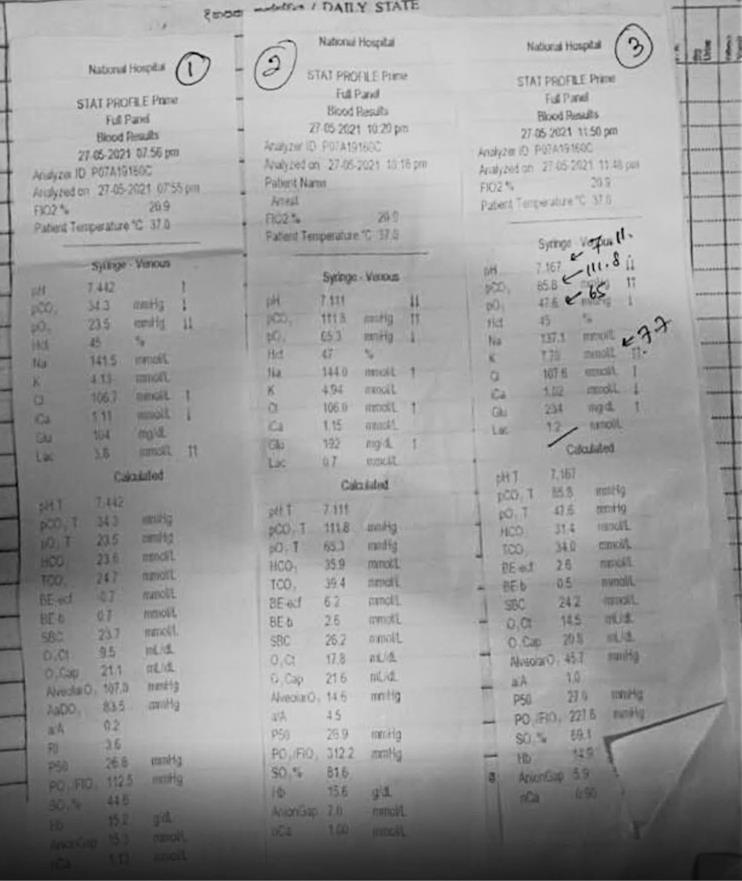 දිනපතා / DAILY STATE
National Hospital
1
STAT PROFILE Prime
Full Panel
Blood Results
27-05-2021 07:56 pm
Analyzer ID P07A19160C
Analyzed on 27-05-2021 07:55 pm
FIO2 % 20.9
Patient Temperature °C 37.0
Syringe - Venous
pH 7.442 ↑
pCO₂ 34.3 mmHg ↓
pO₂ 23.5 mmHg ↓↓
Hct 45 %
Na 141.5 mmol/L
K 4.13 mmol/L
Cl 106.7 mmol/L ↑
iCa 1.11 mmol/L ↓
Glu 104 mg/dL
Lac 3.8 mmol/L ↑↑
Calculated
pH T 7.442
pCO₂ T 34.3 mmHg
pO₂ T 23.5 mmHg
HCO₃ 23.6 mmol/L
TCO₂ 24.7 mmol/L
BE-ecf mmol/L
BE-b 0.7 mmol/L
SBC 23.7 mmol/L
O₂Ct 9.5 mL/dL
O₂Cap 21.1 mL/dL
AlveolarO₂ 107.0 mmHg
AaDO₂ 83.5 mmHg
a/A 0.2
RI 3.6
P50 26.8 mmHg
PO₂/FIO₂ 112.5 mmHg
SO₂% 44.6
Hb 15.2 g/dL
AnionGap 15.3 mmol/L
nCa 1.13 mmol/L
National Hospital
2
STAT PROFILE Prime
Full Panel
Blood Results
27-05-2021 10:20 pm
Analyzer ID P07A19160C
Analyzed on 27-05-2021 10:18 pm
Patient Name
Arrest
FIO2 % 20.9
Patient Temperature °C 37.0
Syringe - Venous
pH 7.111 ↓↓
pCO₂ 111.8 mmHg ↑↑
pO₂ 65.3 mmHg ↓
Hct 47 %
Na 144.0 mmol/L ↑
K 4.94 mmol/L
Cl 106.0 mmol/L ↑
iCa 1.15 mmol/L
Glu 192 mg/dL ↑
Lac 0.7 mmol/L
Calculated
pH T 7.111
pCO₂ T 111.8 mmHg
pO₂ T 65.3 mmHg
HCO₃ 35.9 mmol/L
TCO₂ 39.4 mmol/L
BE-ecf 6.2 mmol/L
BE-b 2.6 mmol/L
SBC 26.2 mmol/L
O₂Ct 17.8 mL/dL
O₂Cap 21.6 mL/dL
AlveolarO₂ 14.6 mmHg
a/A 4.5
P50 26.9 mmHg
PO₂/FIO₂ 312.2 mmHg
SO₂% 81.6
Hb 15.6 g/dL
AnionGap 7.0 mmol/L
nCa 1.00 mmol/L
National Hospital
3
STAT PROFILE Prime
Full Panel
Blood Results
27-05-2021 11:50 pm
Analyzer ID P07A19160C
Analyzed on 27-05-2021 11:48 pm
FIO2 % 20.9
Patient Temperature °C 37.0
Syringe - Venous
pH 7.167 ← 7.11 ↓↓
pCO₂ 85.8 ← 111.8 mmHg ↑↑
pO₂ 47.6 ← 65 mmHg ↓
Hct 45 %
Na 137.1 mmol/L
K 7.70 mmol/L ↑↑ ← 7.7
Cl 107.6 mmol/L ↑
iCa 1.02 mmol/L ↓
Glu 234 mg/dL ↑
Lac 1.2 mmol/L
Calculated
pH T 7.167
pCO₂ T 85.8 mmHg
pO₂ T 47.6 mmHg
HCO₃ 31.4 mmol/L
TCO₂ 34.0 mmol/L
BE-ecf 2.6 mmol/L
BE-b 0.5 mmol/L
SBC 24.2 mmol/L
O₂Ct 14.5 mL/dL
O₂Cap 20.8 mL/dL
AlveolarO₂ 45.7 mmHg
a/A 1.0
P50 27.0 mmHg
PO₂/FIO₂ 227.6 mmHg
SO₂% 69.1
Hb 14.9
AnionGap 5.9
nCa 0.90
Urine